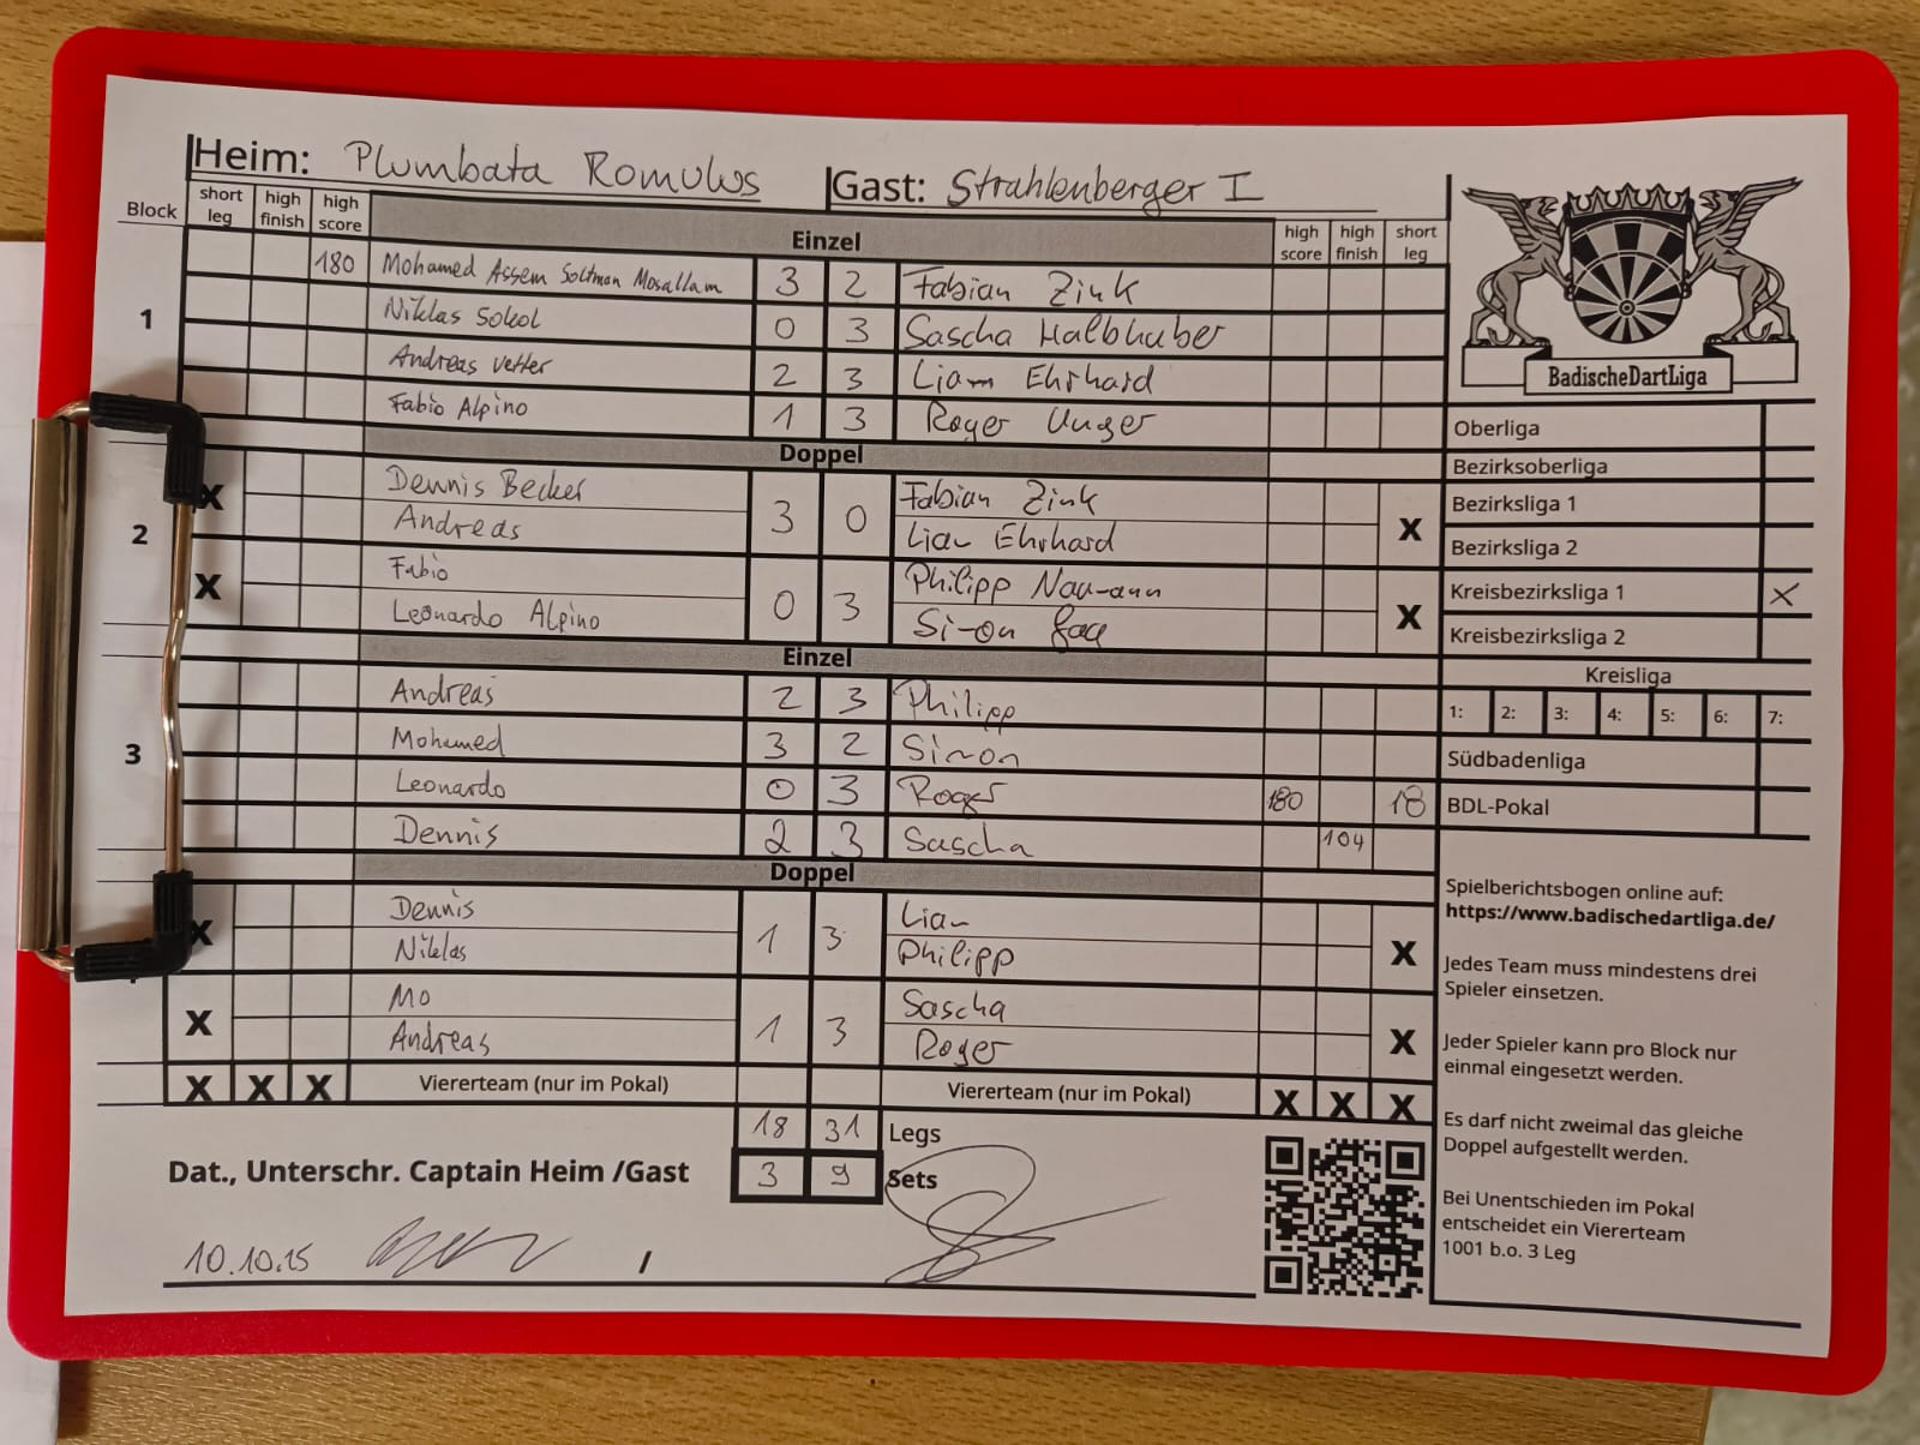 Heim: Plumbata Romulus Gast: Strahlenberger I
Block short leg high finish high score Einzel high score high finish short leg
180 Mohamed Assem Soltman Mosallam 3 2 Fabian Zink
1 Niklas Sokol 0 3 Sascha Halbhuber
Andreas Vetter 2 3 Liam Ehrhard
Fabio Alpino 1 3 Roger Unger
Doppel
2
X Dennis Becker 3 0 Fabian Zink X
Andreas Liam Ehrhard
X Fabio 0 3 Philipp Naumann X
Leonardo Alpino Simon
Einzel
Andreas 2 3 Philipp
3 Mohamed 3 2 Simon
Leonardo 0 3 Roger 180 18
Dennis 2 3 Sascha 104
Doppel
X Dennis 1 3 Liam X
Niklas Philipp
X Mo 1 3 Sascha X
Andreas Roger
X X X Viererteam (nur im Pokal) Viererteam (nur im Pokal) X X X
18 31 Legs
Dat., Unterschr. Captain Heim /Gast 3 9 Sets
10.10.25 /
BadischeDartLiga
Oberliga
Bezirksoberliga
Bezirksliga 1
Bezirksliga 2
Kreisbezirksliga 1 X
Kreisbezirksliga 2
Kreisliga
1: 2: 3: 4: 5: 6: 7:
Südbadenliga
BDL-Pokal
Spielberichtsbogen online auf:
https://www.badischedartliga.de/
Jedes Team muss mindestens drei
Spieler einsetzen.
Jeder Spieler kann pro Block nur
einmal eingesetzt werden.
Es darf nicht zweimal das gleiche
Doppel aufgestellt werden.
Bei Unentschieden im Pokal
entscheidet ein Viererteam
1001 b.o. 3 Leg